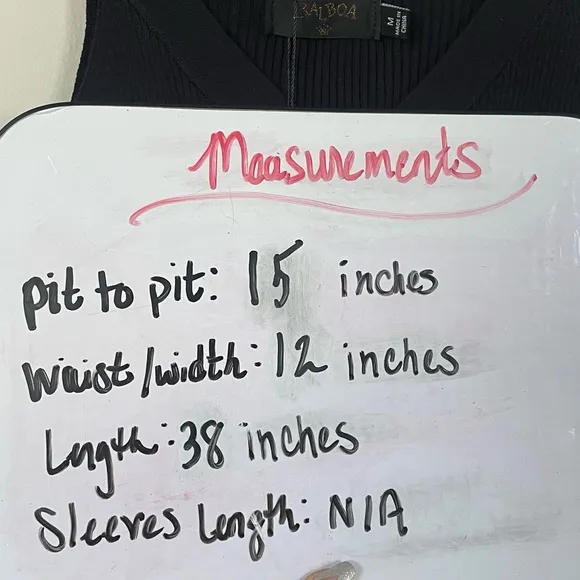 BALBOA
M
MADE IN
CHINA
Measurements
pit to pit: 15 inches
Waist/width: 12 inches
Length: 38 inches
Sleeves Length: N/A